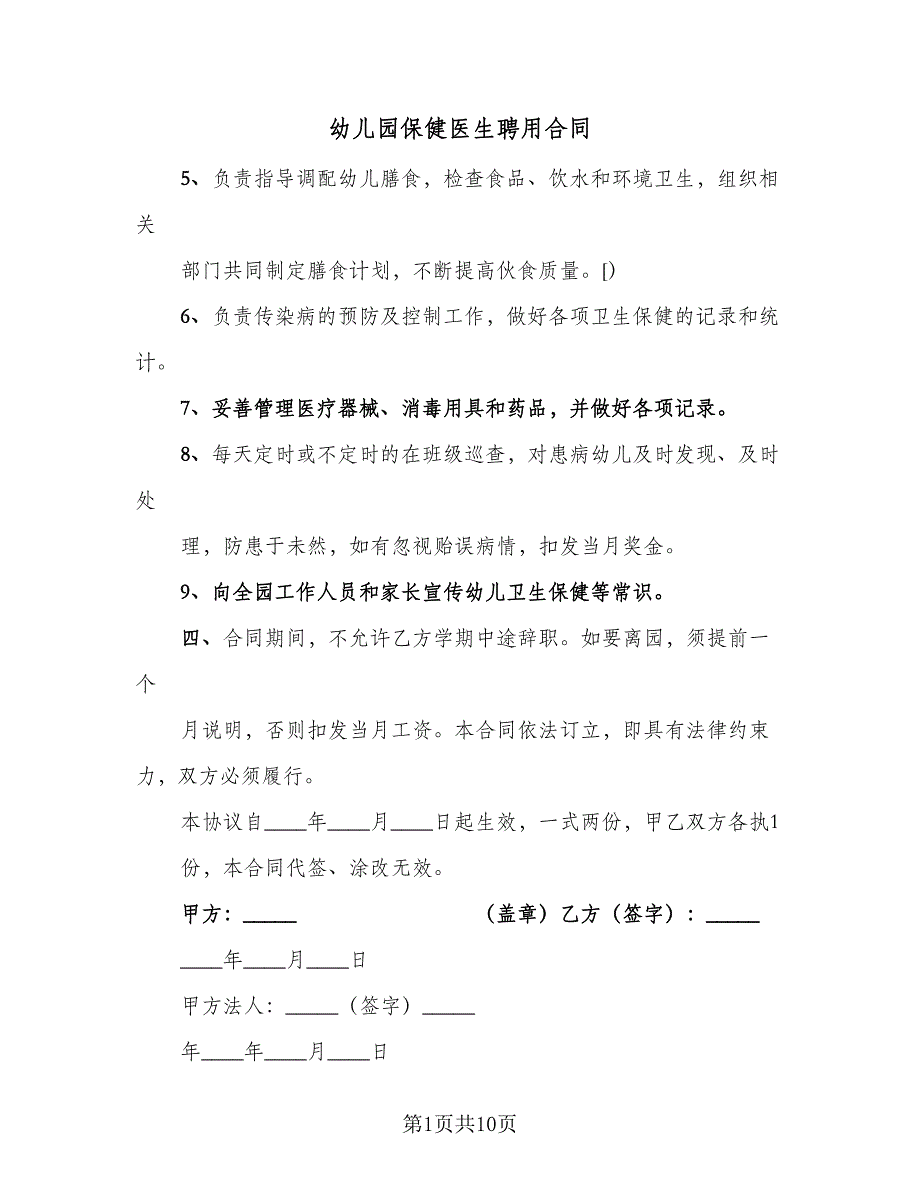 幼儿园保健医生聘用合同
5、负责指导调配幼儿膳食，检查食品、饮水和环境卫生，组织相
关
部门共同制定膳食计划，不断提高伙食质量。[)
6、负责传染病的预防及控制工作，做好各项卫生保健的记录和统
计。
7、妥善管理医疗器械、消毒用具和药品，并做好各项记录。
8、每天定时或不定时的在班级巡查，对患病幼儿及时发现、及时
处
理，防患于未然，如有忽视贻误病情，扣发当月奖金。
9、向全园工作人员和家长宣传幼儿卫生保健等常识。
四、合同期间，不允许乙方学期中途辞职。如要离园，须提前一
个
月说明，否则扣发当月工资。本合同依法订立，即具有法律约束
力，双方必须履行。
本协议自____年____月____日起生效，一式两份，甲乙双方各执1
份，本合同代签、涂改无效。
甲方：_____ （盖章）乙方（签字）：_____
____年____月____日
甲方法人：_____（签字）_____
年____年____月____日
第1页共10页